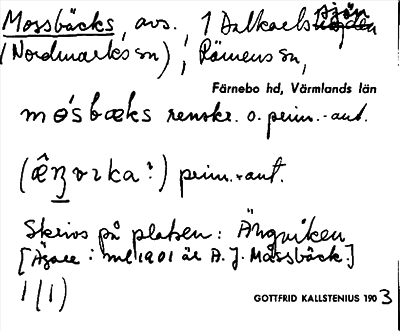 Mossbäcks, avs., 1 Dalkarlssjön
(Nordmarks sn), Rämens sn,
Färnebo hd, Värmlands län
bæks renskr. o. prim.-aut.
prim.-aut.
Skrivs på platsen: Ängviken
[Ägare: 1901 är A. J. Mossbäck.]
1/1)
GOTTFRID KALLSTENIUS 1903